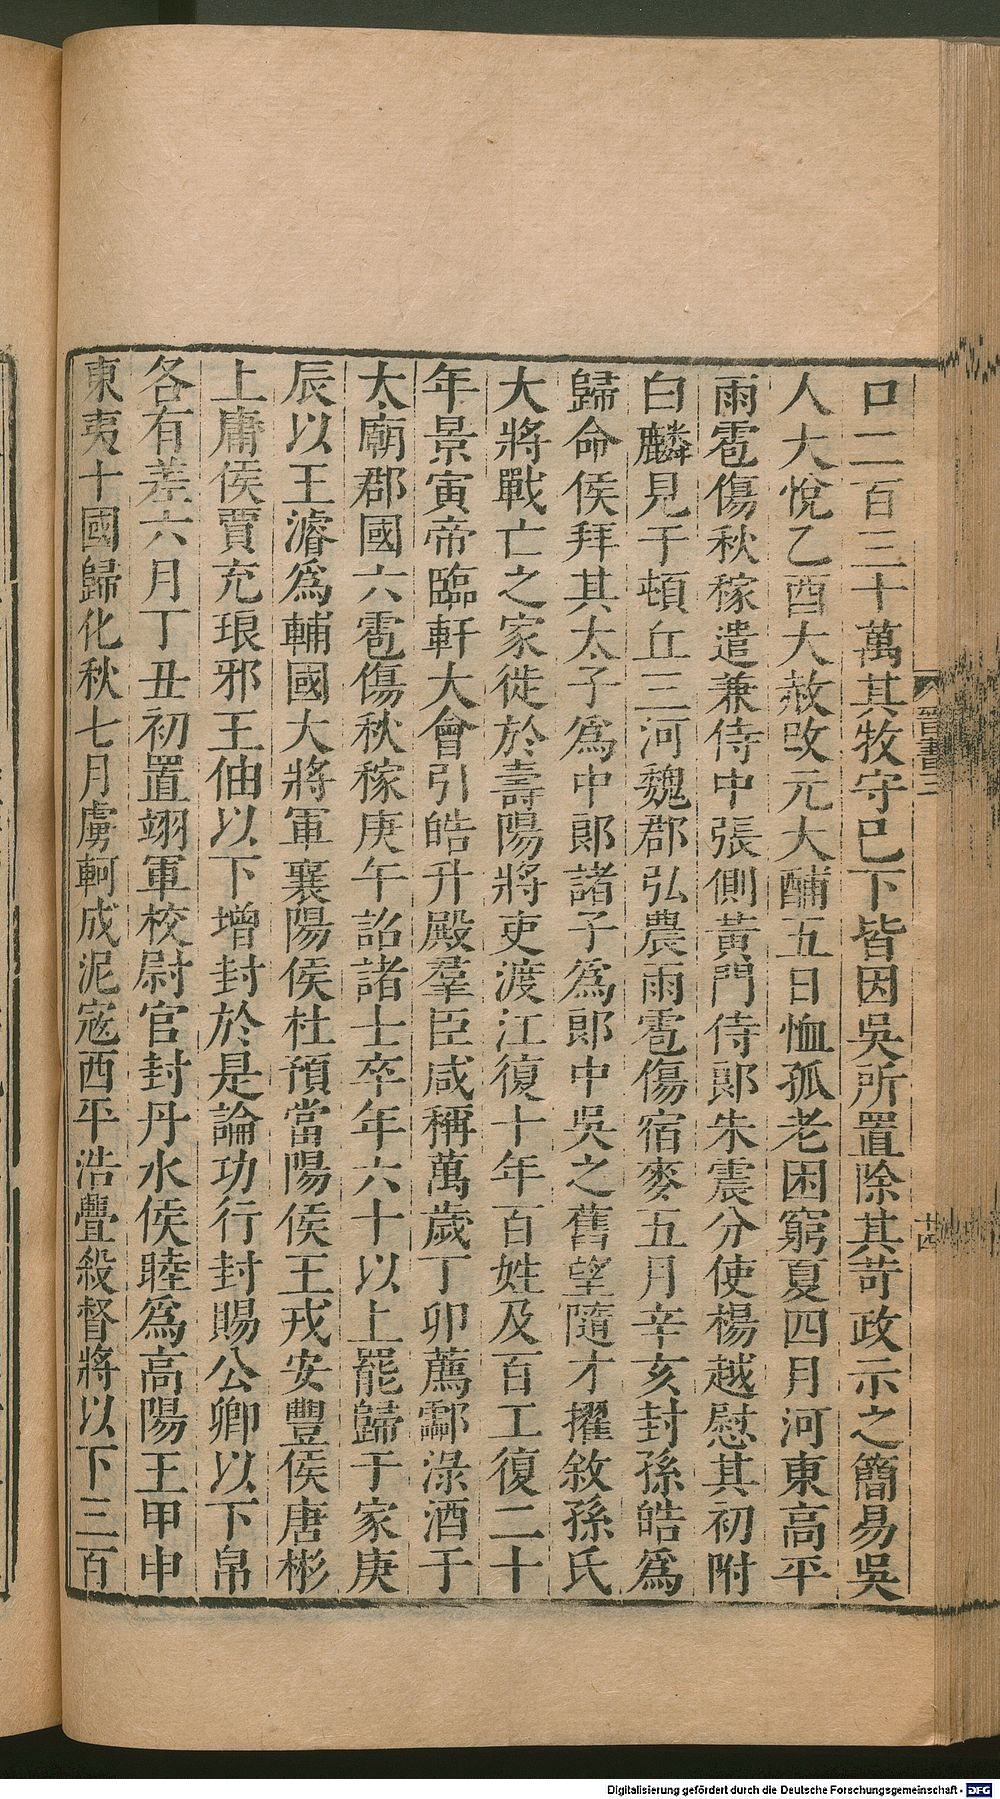 口二百三十萬其牧守已下皆因吳所置除其苛政示之簡易吳
人大悅乙酉大赦改元大酺五日恤孤老困窮夏四月河東高平
雨雹傷秋稼遣兼侍中張側黃門侍郎朱震分使楊越慰其初附
白麟見于頓丘三河魏郡弘農雨雹傷宿麥五月辛亥封孫皓爲
歸命侯拜其太子爲中郎諸子爲郎中吳之舊望隨才擢敘孫氏
大將戰亡之家徙於壽陽將吏渡江復十年百姓及百工復二十
年景寅帝臨軒大會引皓升殿羣臣咸稱萬歲丁卯薦酃淥酒于
太廟郡國六雹傷秋稼庚午詔諸士卒年六十以上罷歸于家庚
辰以王濬爲輔國大將軍襄陽侯杜預當陽侯王戎安豐侯唐彬
上庸侯賈充琅邪王伷以下增封於是論功行封賜公卿以下帛
各有差六月丁丑初置翊軍校尉官封丹水侯睦爲高陽王甲申
東夷十國歸化秋七月虜軻成泥寇西平浩亹殺督將以下三百
晉書三
廿四
Digitalisierung gefördert durch die Deutsche Forschungsgemeinschaft - DFG